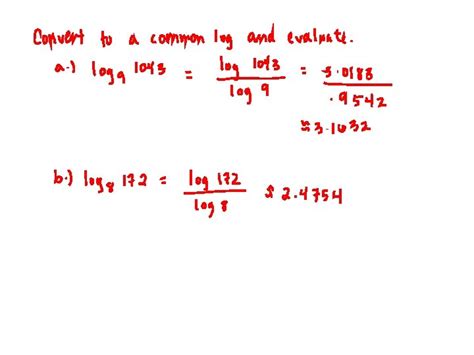 Convert to a common log and evaluate.
a.) log₉ 1043 = log 1043 / log 9 = 3.0188 / .9542
≈ 3.1632
b.) log₈ 172 = log 172 / log 8 ≈ 2.4754